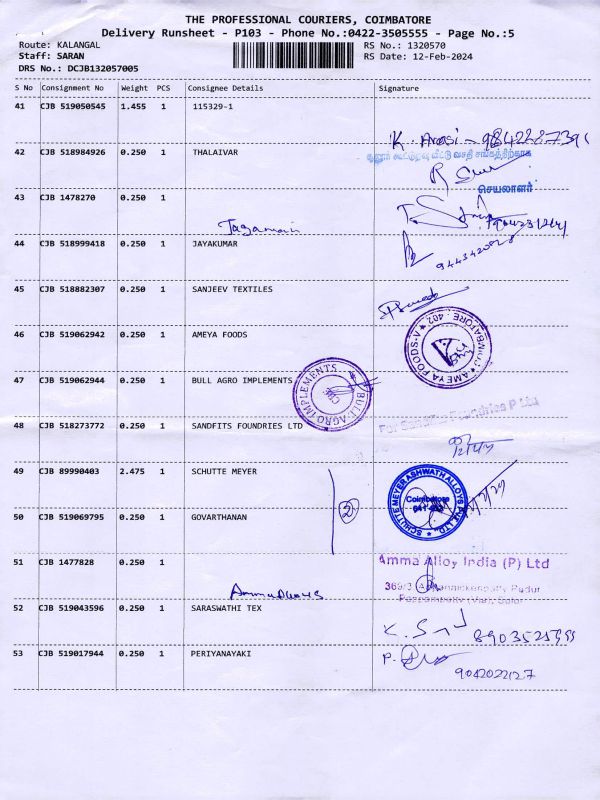 THE PROFESSIONAL COURIERS, COIMBATORE
Delivery Runsheet - P103 - Phone No.:0422-3505555 - Page No.:5
Route: KALANGAL
RS No.: 1320570
Staff: SARAN
RS Date: 12-Feb-2024
DRS No.: DCJB132057005
S No Consignment No Weight PCS Consignee Details Signature
41 CJB 519050545 1.455 1 115329-1
K. Arasi - 984228739
42 CJB 518984926 0.250 1 THALAIVAR
செயலாளர்
43 CJB 1478270 0.250 1
44 CJB 518999418 0.250 1 JAYAKUMAR
45 CJB 518882307 0.250 1 SANJEEV TEXTILES
46 CJB 519062942 0.250 1 AMEYA FOODS
AMEYA FOODS-V COIMBATORE - 402
47 CJB 519062944 0.250 1 BULL AGRO IMPLEMENTS
BULL AGRO IMPLEMENTS
48 CJB 518273772 0.250 1 SANDFITS FOUNDRIES LTD
For Sandfits Foundries P Ltd
49 CJB 89990403 2.475 1 SCHUTTE MEYER
SCHUTTE MEYER ASHWATH ALLOYS PVT. LTD.
Coimbatore
2
50 CJB 519069795 0.250 1 GOVARTHANAN
51 CJB 1477828 0.250 1
Amma Alloy India (P) Ltd
52 CJB 519043596 0.250 1 SARASWATHI TEX
53 CJB 519017944 0.250 1 PERIYANAYAKI
9042022127